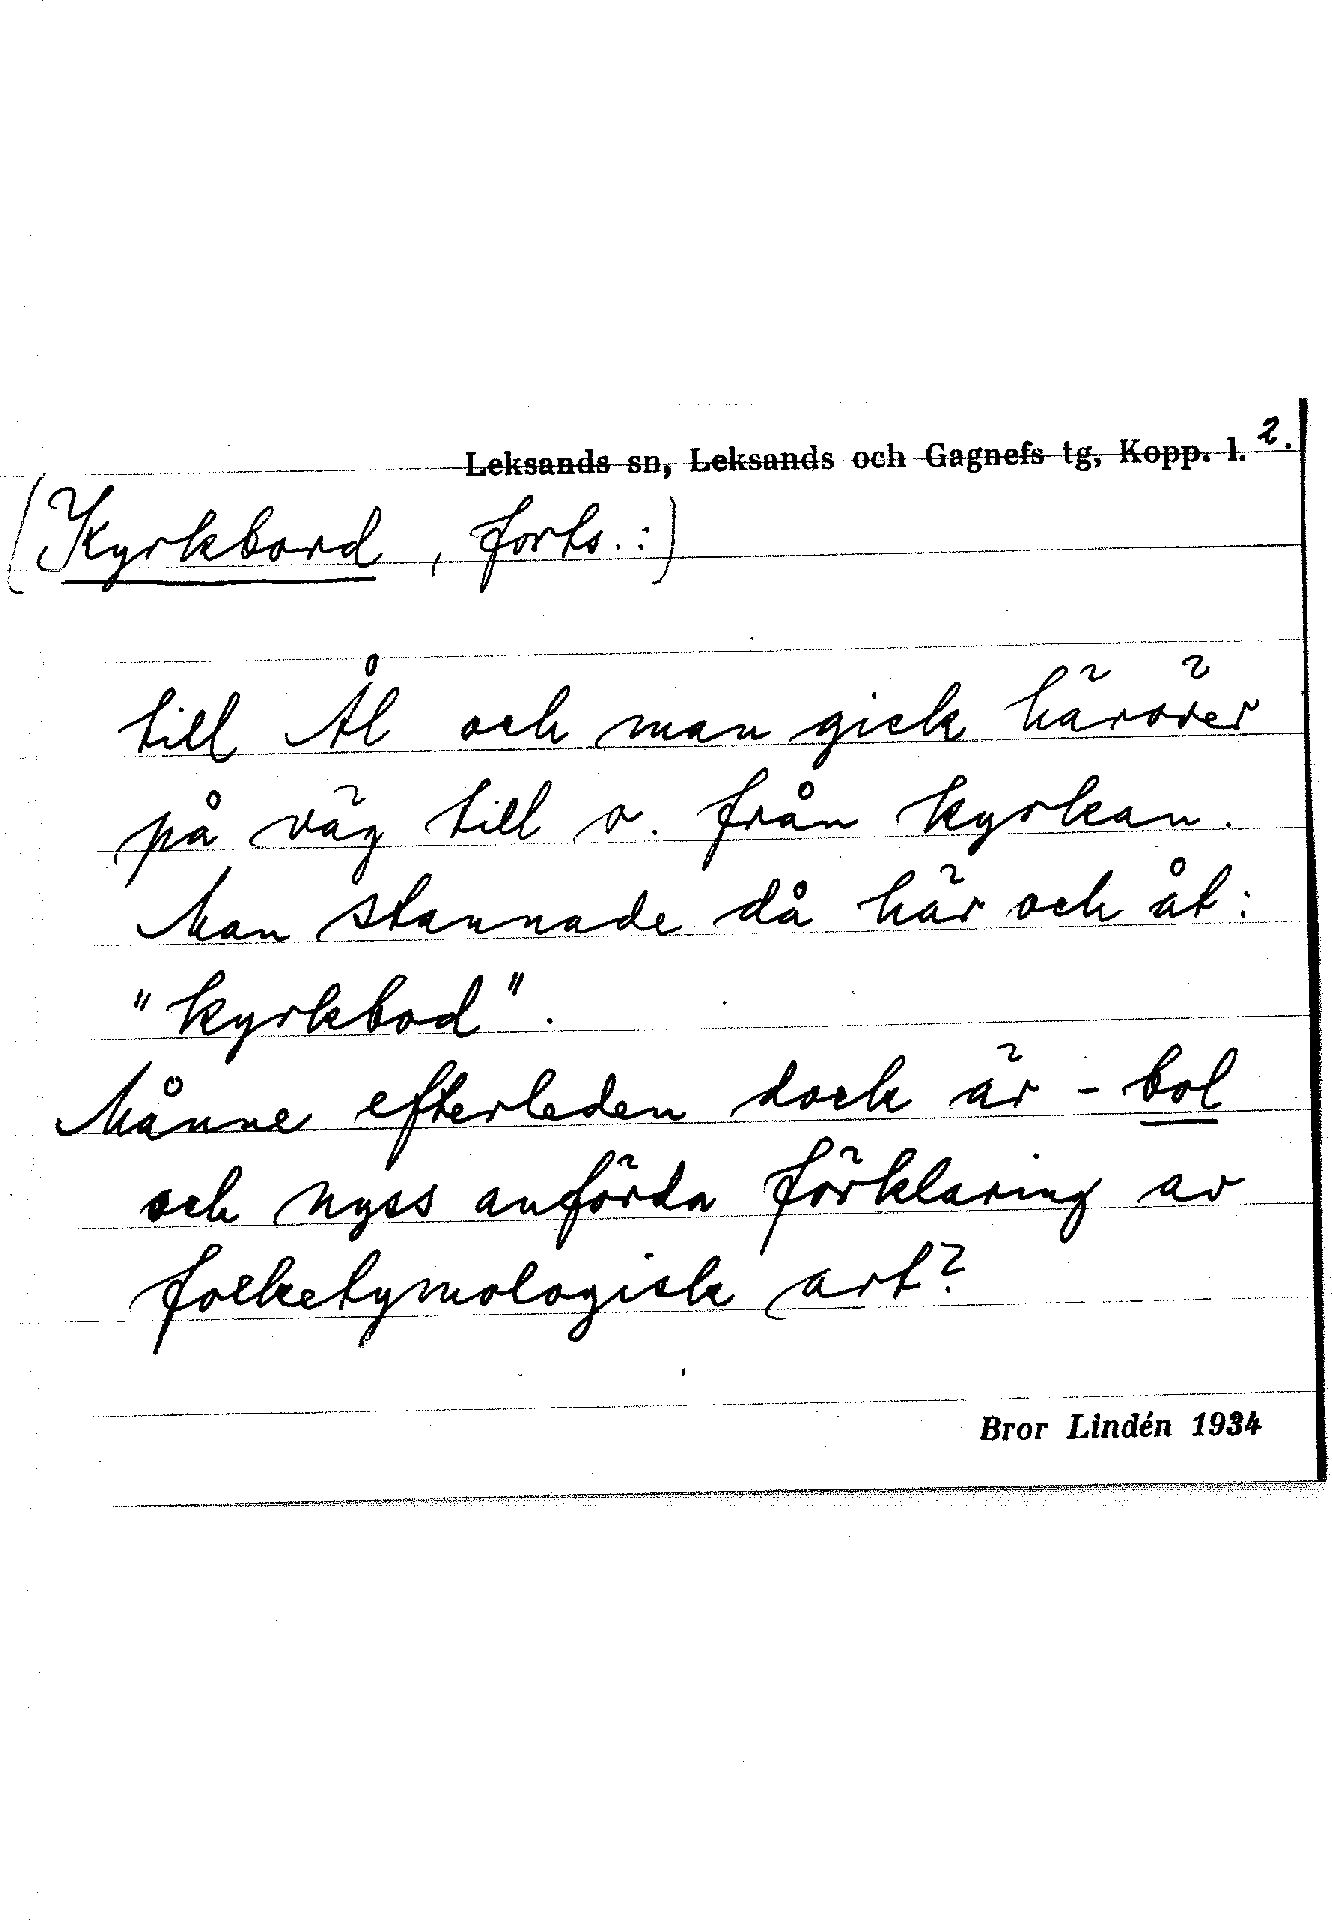 Leksands sn, Leksands och Gagnefs tg, Kopp. l. 2.
(Kyrkbord, forts.:)
till Ål och man gick häröver
på väg till o. från kyrkan.
Man stannade då här och åt:
"kyrkbod".
Månne efterleden dock är -bol
och nyss anförda förklaring av
folketymologisk art?
Bror Lindén 1934